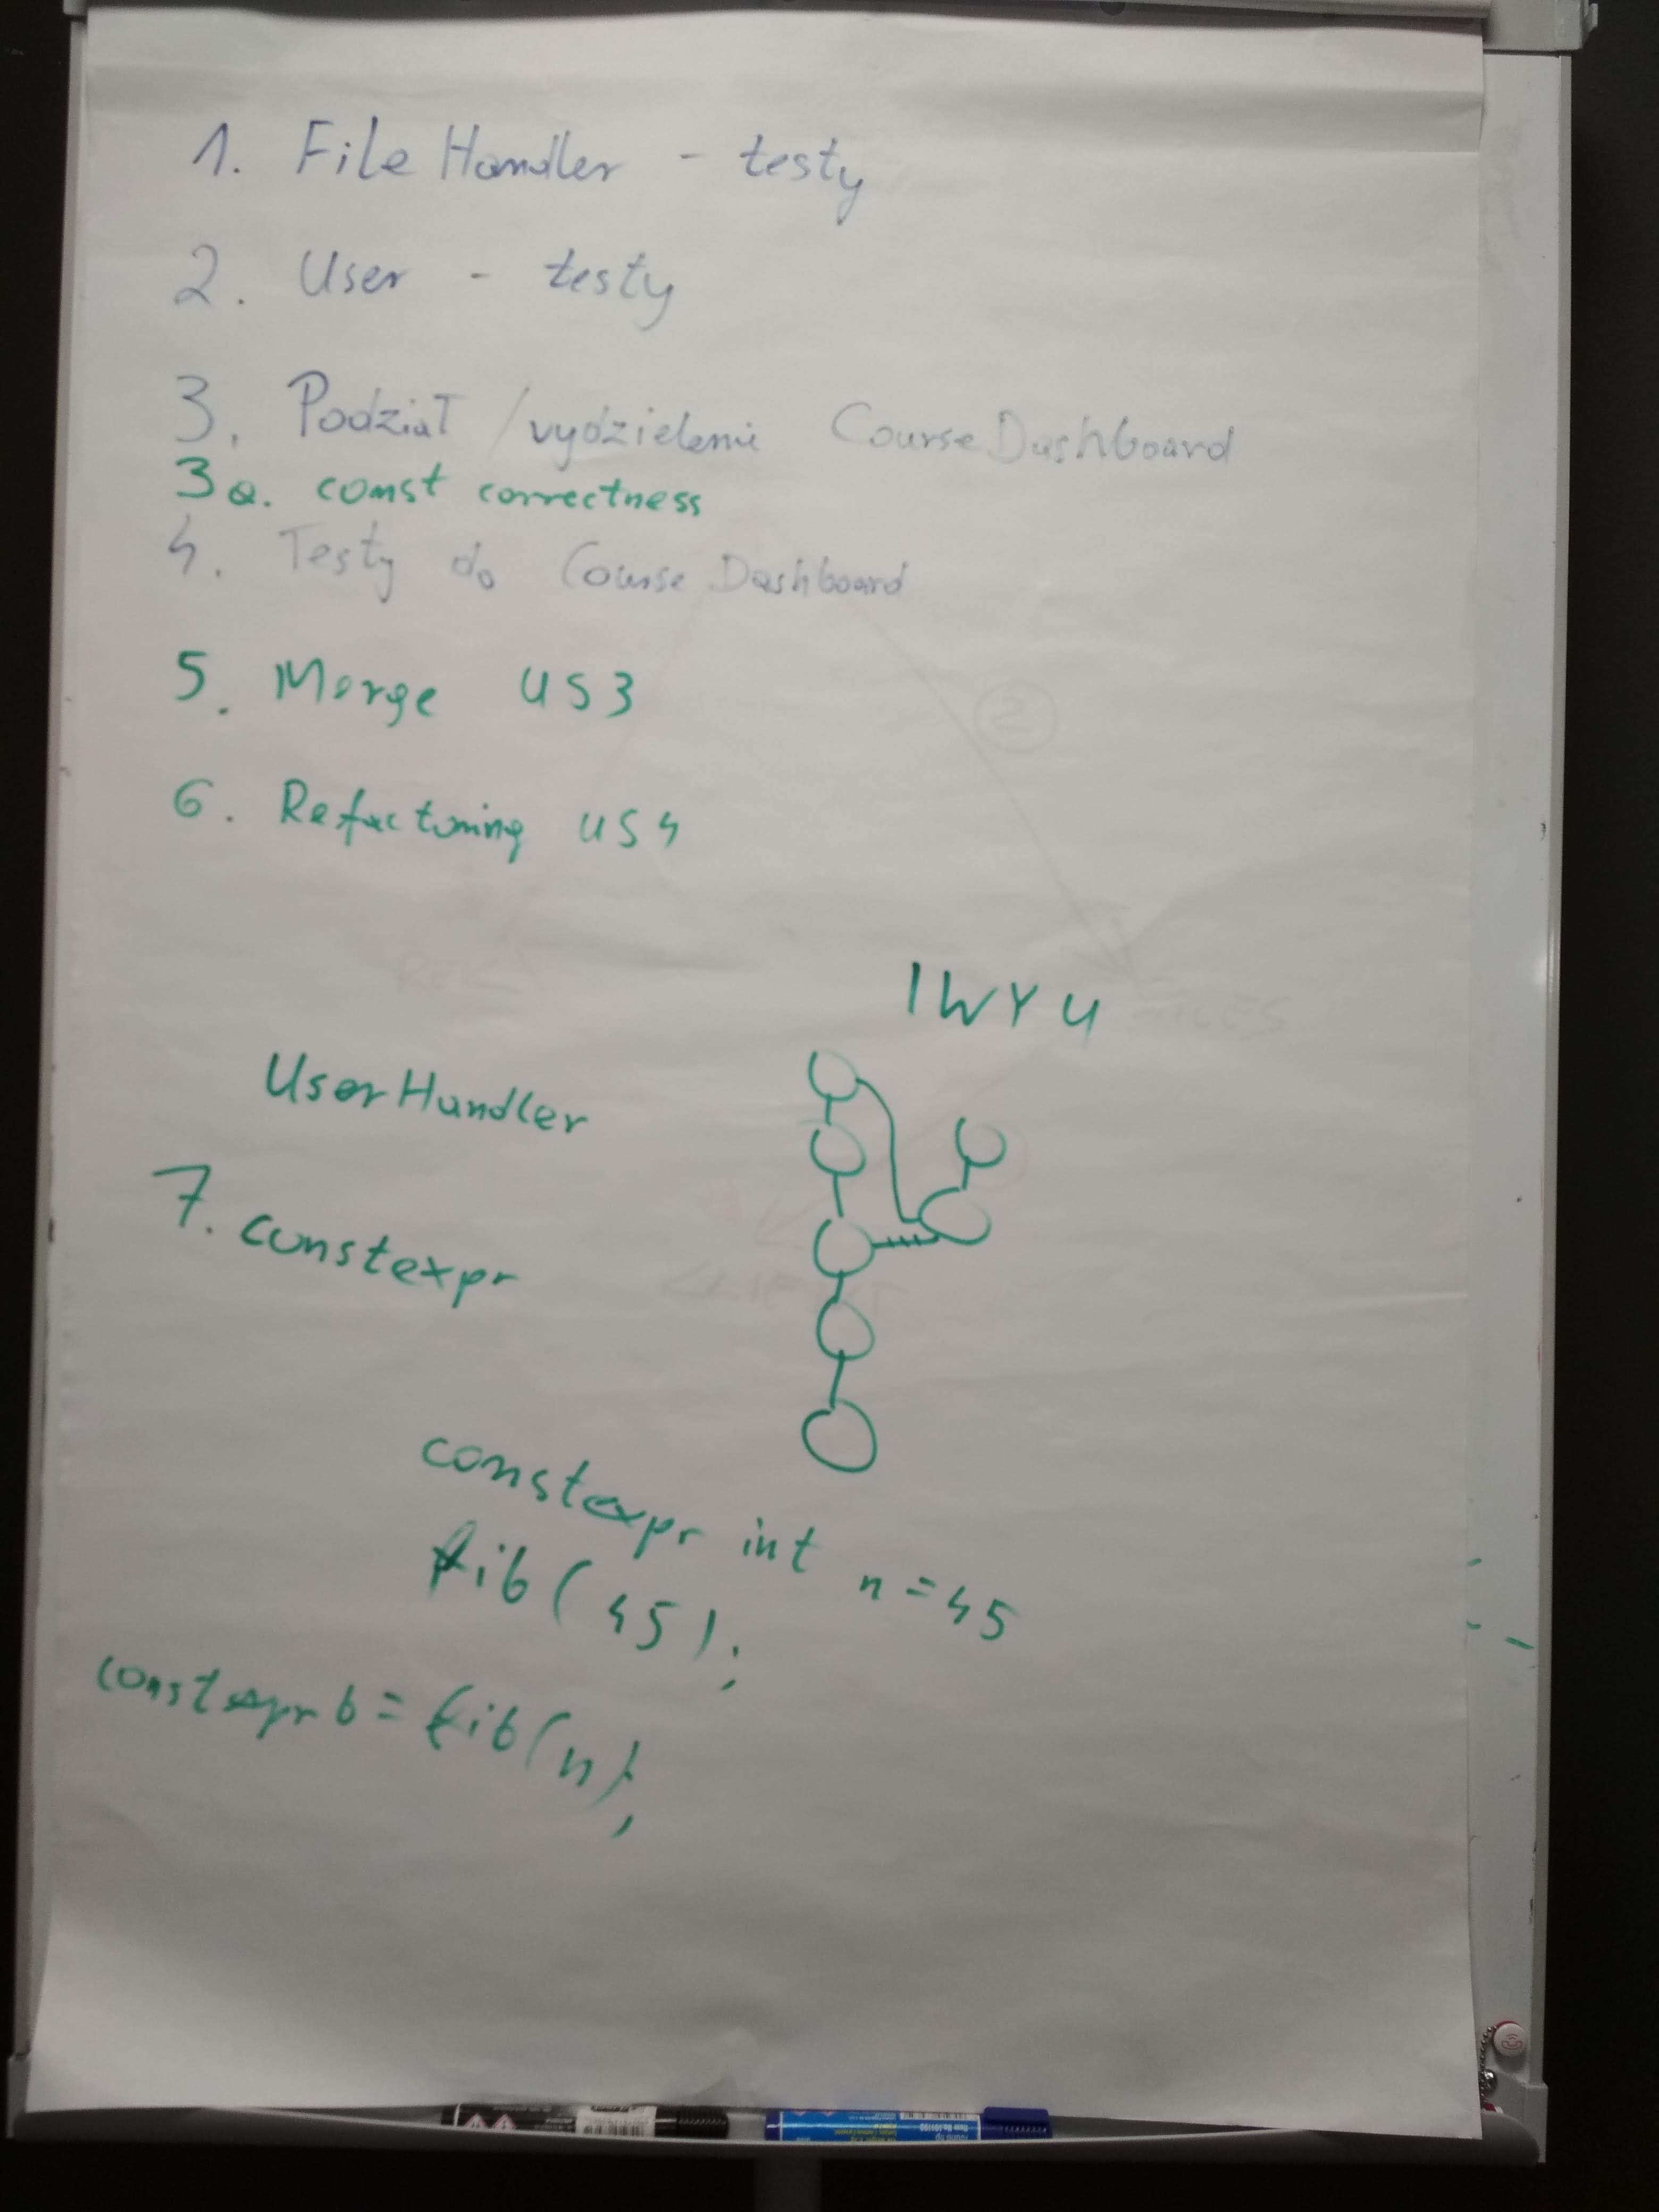 1. FileHandler - testy
2. User - testy
3. Podział / wydzielenie CourseDashboard
3a. const correctness
4. Testy do CourseDashboard
5. Merge US3
6. Refactoring US4
2
IWYU
UserHandler
7. constexpr
constexpr int n = 45
fib(45);
constexpr b = fib(n);